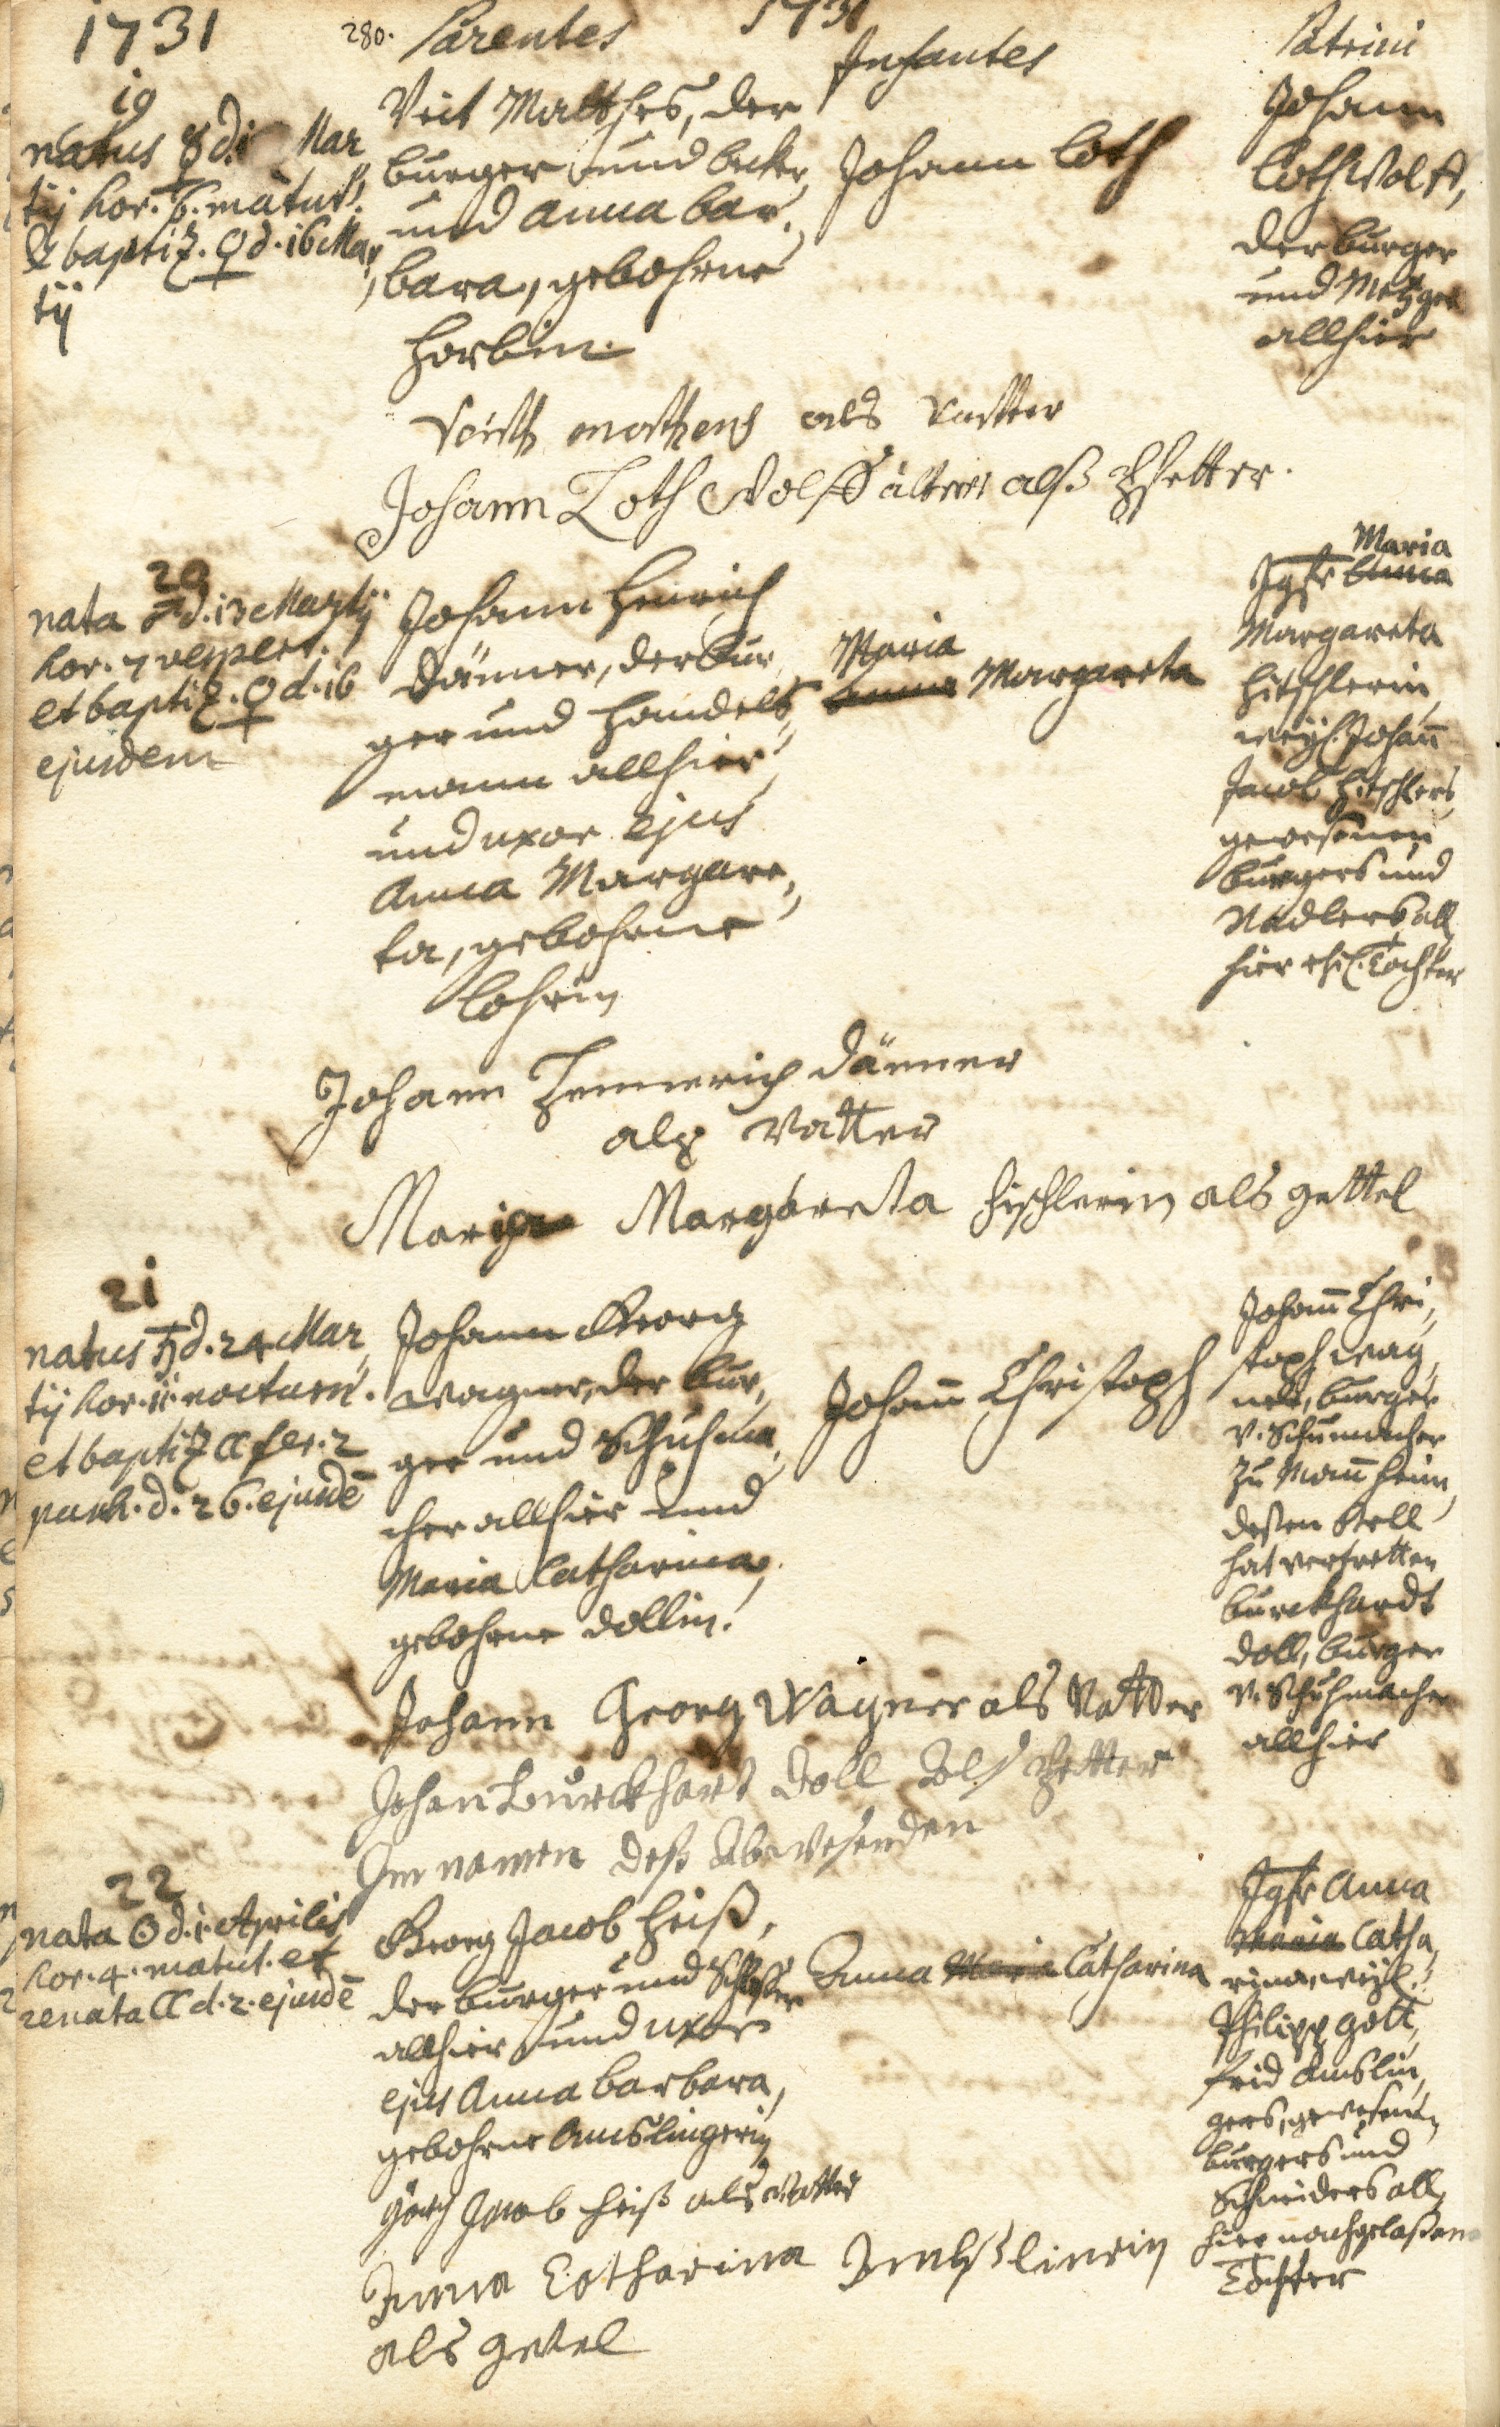 1731
280.
Parentes
1731
Infantes
Patrini
19
natus ☿ d. 1 Mar
tij hor. 6. matut.
& baptiz. ♀ d. 16 Mar,
tij
Veit Matthes, der
burger und becker,
und Anna Bar,
bara, gebohrne
Horbin.
Johann Loth
Johann
Loth Wolff,
der burger
und Metzger
allhier
Veith mathens als vatter
Johann Loth Wolff älter alß Pfetter.
20
nata ♂ d. 13 Martij
hor. 7 vespert.
et baptiz. ♀ d. 16
ejusdem
Johann Henrich
Dänner, der bur,
ger und Handels,
mann allhier
und uxor ejus
Anna Margare,
ta, gebohrne
Lohrin
Maria
Anna Margareta
Maria
Jgfr Anna
Margareta
Hitschlerin,
weyl. Johann
Jacob Hitschlers,
gewesenen
burgers und
Nadlers all,
hier ehl. Tochter
Johann Hennerich Dänner
alß Vatter
Maria Margareta Hischlerin als gettel
21
natus ♄ d. 24 Mar,
tij hor. 11. nocturn.
et baptiz ☾ fer. 2
pasch. d. 26. ejusdē
Johann Georg
Wagner, der bur,
ger und Schuhma,
cher allhier und
Maria Catharina,
gebohrne Dollin.
Johann̄ Christoph
Johann̄ Chri,
stoph Wag,
ner, burger
v. Schumacher
zu Mañheim,
deßen stell
hat vertretten
Burckhardt
Doll, burger
v. Schuhmacher
allhier
Johann Georg Wagner als Vatter
Johan Burckhart Doll Alß Pfetter
Im namen deß Abwesenden
22
nata ☉ d. 1. Aprilis
hor. 4. matut. et
renata ☾ d. 2. ejusdē
Georg Jacob Heiß,
der burger und Schloßer
allhier und uxor
ejus Anna Barbara,
gebohrne Amslingerin
Anna Maria Catharina
Jgfr Anna
Maria Catha,
rina, weyl.
Philipp Gott,
frid Amslin,
gers, gewesenen
burgers und
Schneiders all,
hier nachgelaßene
Tochter
Görg Jacob Heiß als Vatter
Anna Catharina
als getel